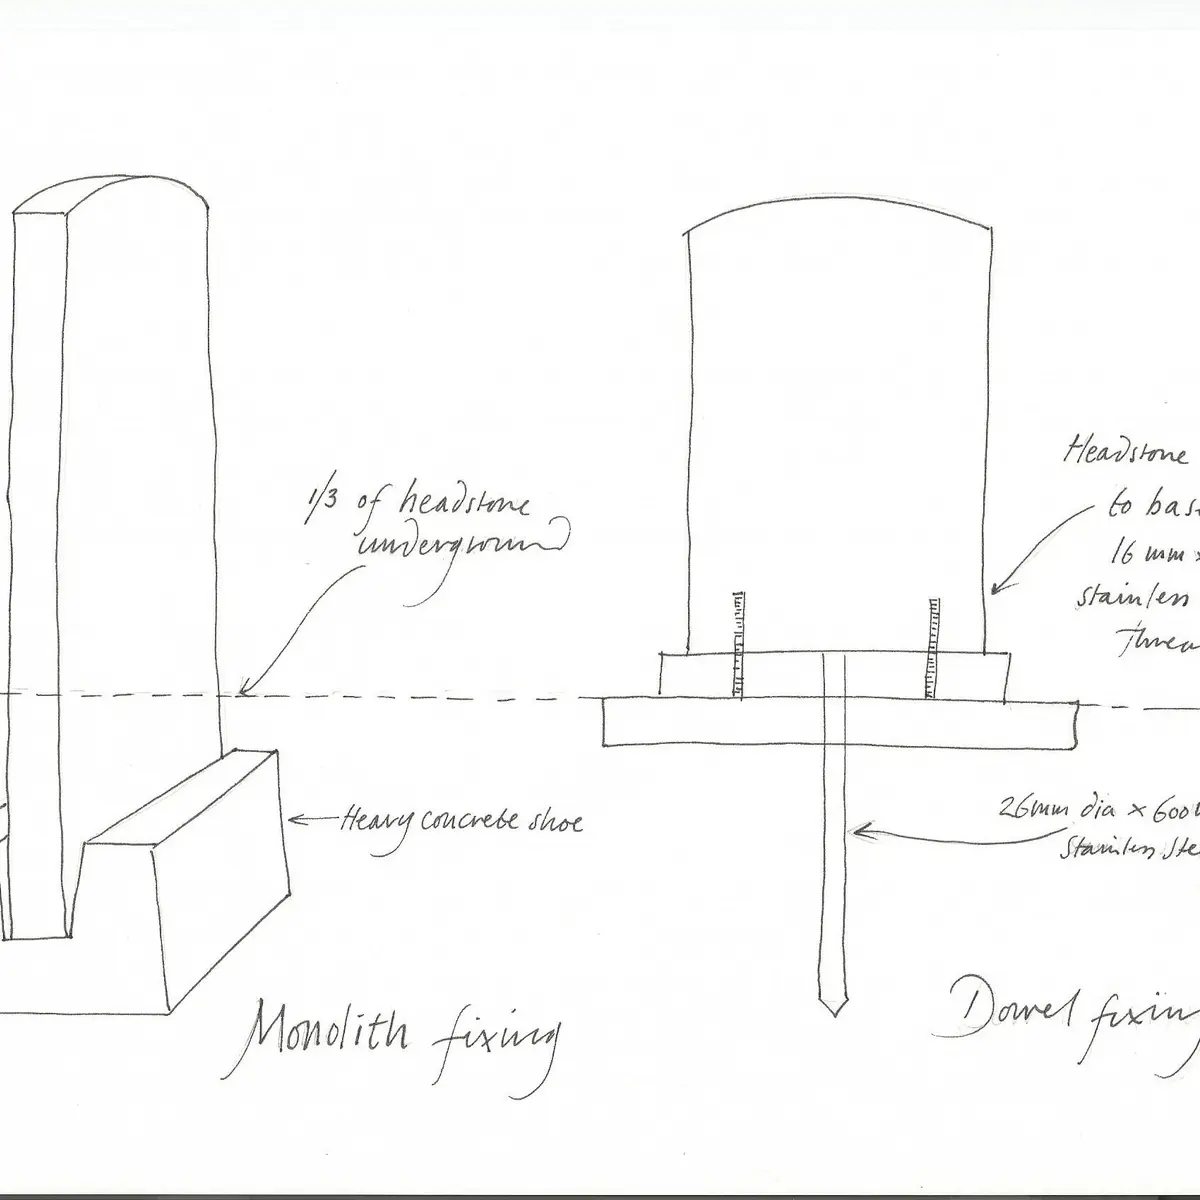 1/3 of headstone
underground
Heavy concrete shoe
Monolith fixing
Headstone
to bas
16 mm x
stainless
Threa
26mm dia x 600
Stainless Ste
Dowel fixing